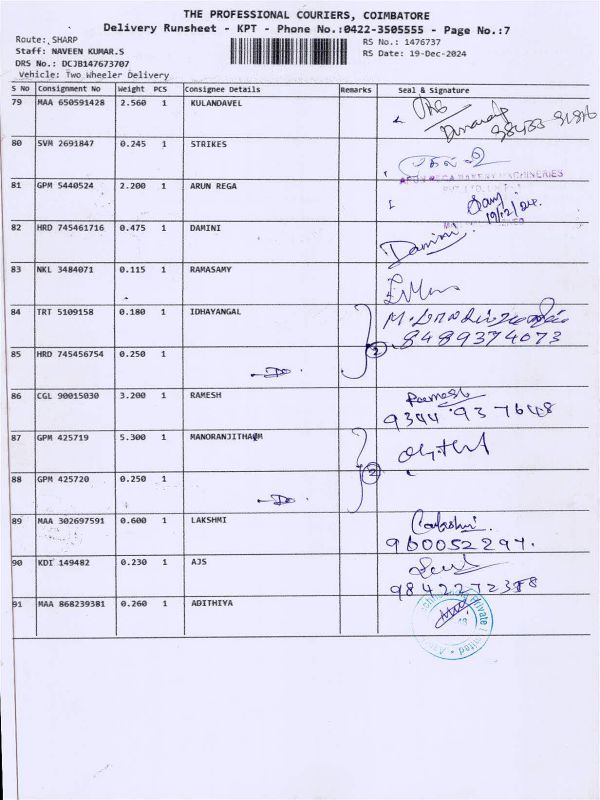 THE PROFESSIONAL COURIERS, COIMBATORE
Delivery Runsheet - KPT - Phone No.:0422-3505555 - Page No.:7
Route: SHARP RS No.: 1476737
Staff: NAVEEN KUMAR.S RS Date: 19-Dec-2024
DRS No.: DCJB147673707
Vehicle: Two Wheeler Delivery
S No Consignment No Weight PCS Consignee Details Remarks Seal & Signature
79 MAA 650591428 2.560 1 KULANDAVEL
80 SVM 2691847 0.245 1 STRIKES
ARUN REGA BAKERY MACHINERIES
81 GPM 5440524 2.200 1 ARUN REGA
19/12/24
82 HRD 745461716 0.475 1 DAMINI Damini
83 NKL 3484071 0.115 1 RAMASAMY
84 TRT 5109158 0.180 1 IDHAYANGAL
8489374073
85 HRD 745456754 0.250 1 -Do- 2
86 CGL 90015030 3.200 1 RAMESH Ramesh
9344 937648
87 GPM 425719 5.300 1 MANORANJITHAM
88 GPM 425720 0.250 1 -Do- 2
89 MAA 302697591 0.600 1 LAKSHMI
960052297.
90 KDI 149482 0.230 1 AJS
91 MAA 868239381 0.260 1 ADITHIYA